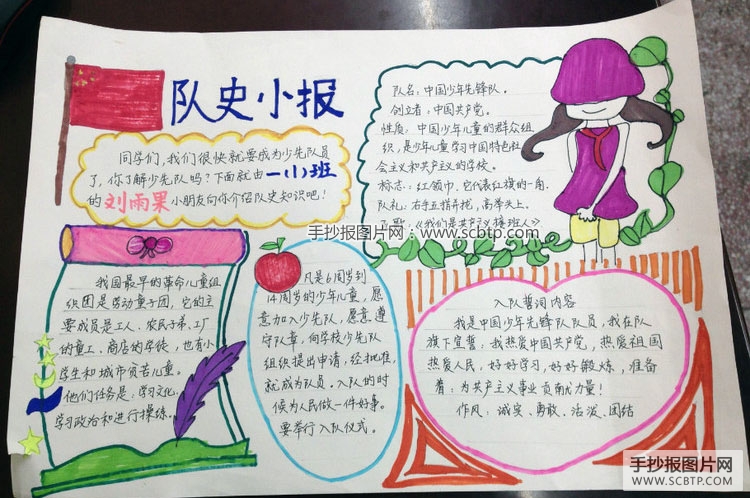 队史小报
同学们，我们很快就要成为少先队员
了，你了解少先队吗？下面就由一(1)班
的刘雨果小朋友向你介绍队史知识吧！
队名：中国少年先锋队。
创立者：中国共产党。
性质：中国少年儿童的群众组
织，是少年儿童学习中国特色社
会主义和共产主义的学校。
标志：红领巾，它代表红旗的一角。
队礼：右手五指并拢，高举头上。
队歌：《我们是共产主义接班人》
手抄报图片网：www.scbtp.com
我国最早的革命儿童组
织团是劳动童子团，它的主
要成员是工人、农民子弟、工厂
的童工、商店的学徒，也有小
学生和城市贫苦儿童。
他们任务是：学习文化、
学习政治和进行操练。
凡是6周岁到
14周岁的少年儿童，愿
意加入少先队，愿意遵
守队章，向学校少先队
组织提出申请，经批准，
就成为队员。入队的时
候为人民做一件好事。
要举行入队仪式。
入队誓词内容
我是中国少年先锋队队员，我在队
旗下宣誓：我热爱中国共产党，热爱祖国
热爱人民，好好学习，好好锻炼，准备
着：为共产主义事业贡献力量！
作风：诚实、勇敢、活泼、团结
手抄报图片网
WWW.SCBTP.COM